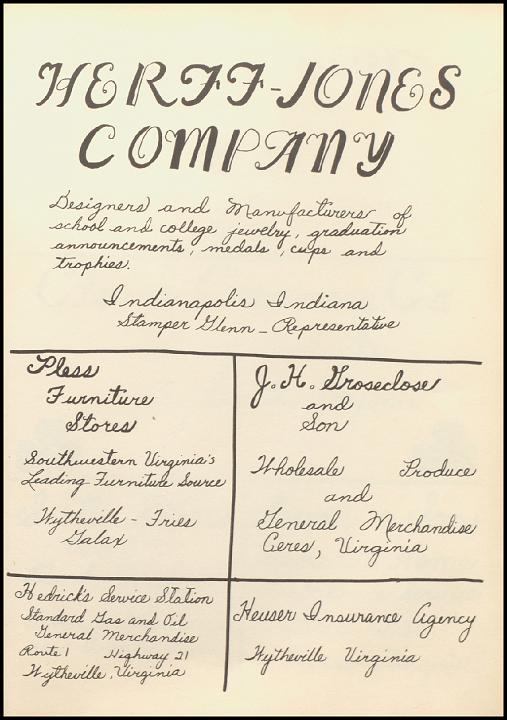 HERFF-JONES
COMPANY
Designers and Manufacturers of
school and college jewelry, graduation
announcements, medals, cups and
trophies.
Indianapolis Indiana
Stamper Glenn - Representative
Pless
Furniture
Stores
Southwestern Virginia's
Leading Furniture Source
Wytheville - Fries
Galax
J. H. Groseclose
and
Son
Wholesale Produce
and
General Merchandise
Ceres, Virginia
Hedrick's Service Station
Standard Gas and Oil
General Merchandise
Route 1 Highway 21
Wytheville, Virginia
Heuser Insurance Agency
Wytheville Virginia